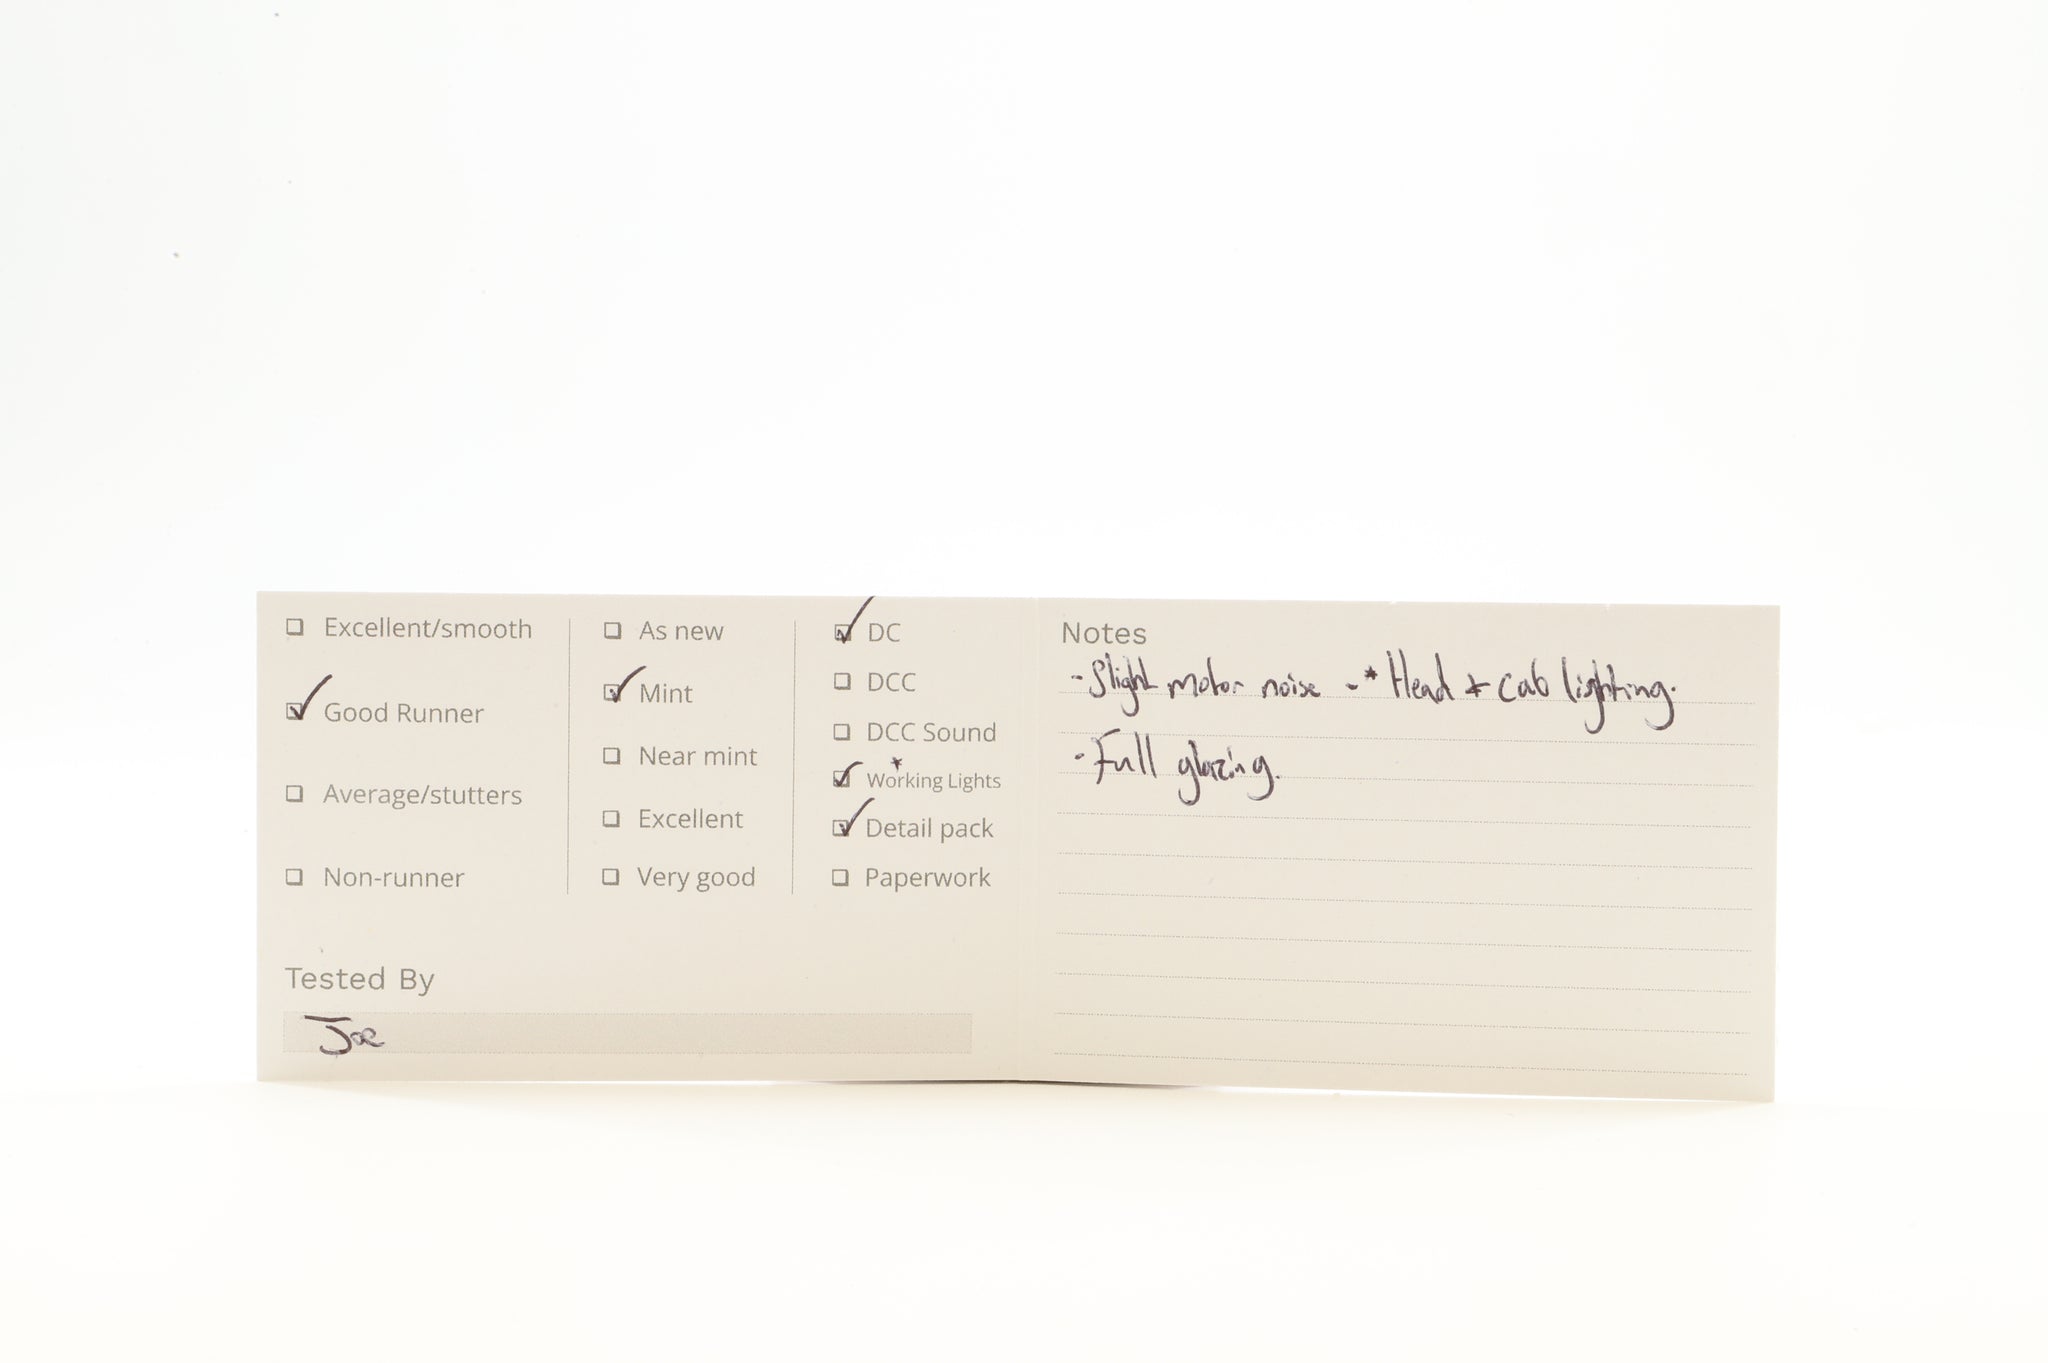 Excellent/smooth
Good Runner
Average/stutters
Non-runner
As new
Mint
Near mint
Excellent
Very good
DC
DCC
DCC Sound
*
Working Lights
Detail pack
Paperwork
Tested By
Joe
Notes
- Slight motor noise - * Head + cab lighting.
- Full glazing.